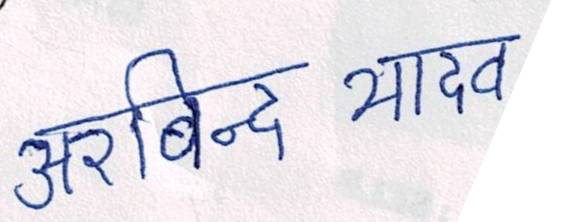 अरबिन्द यादव